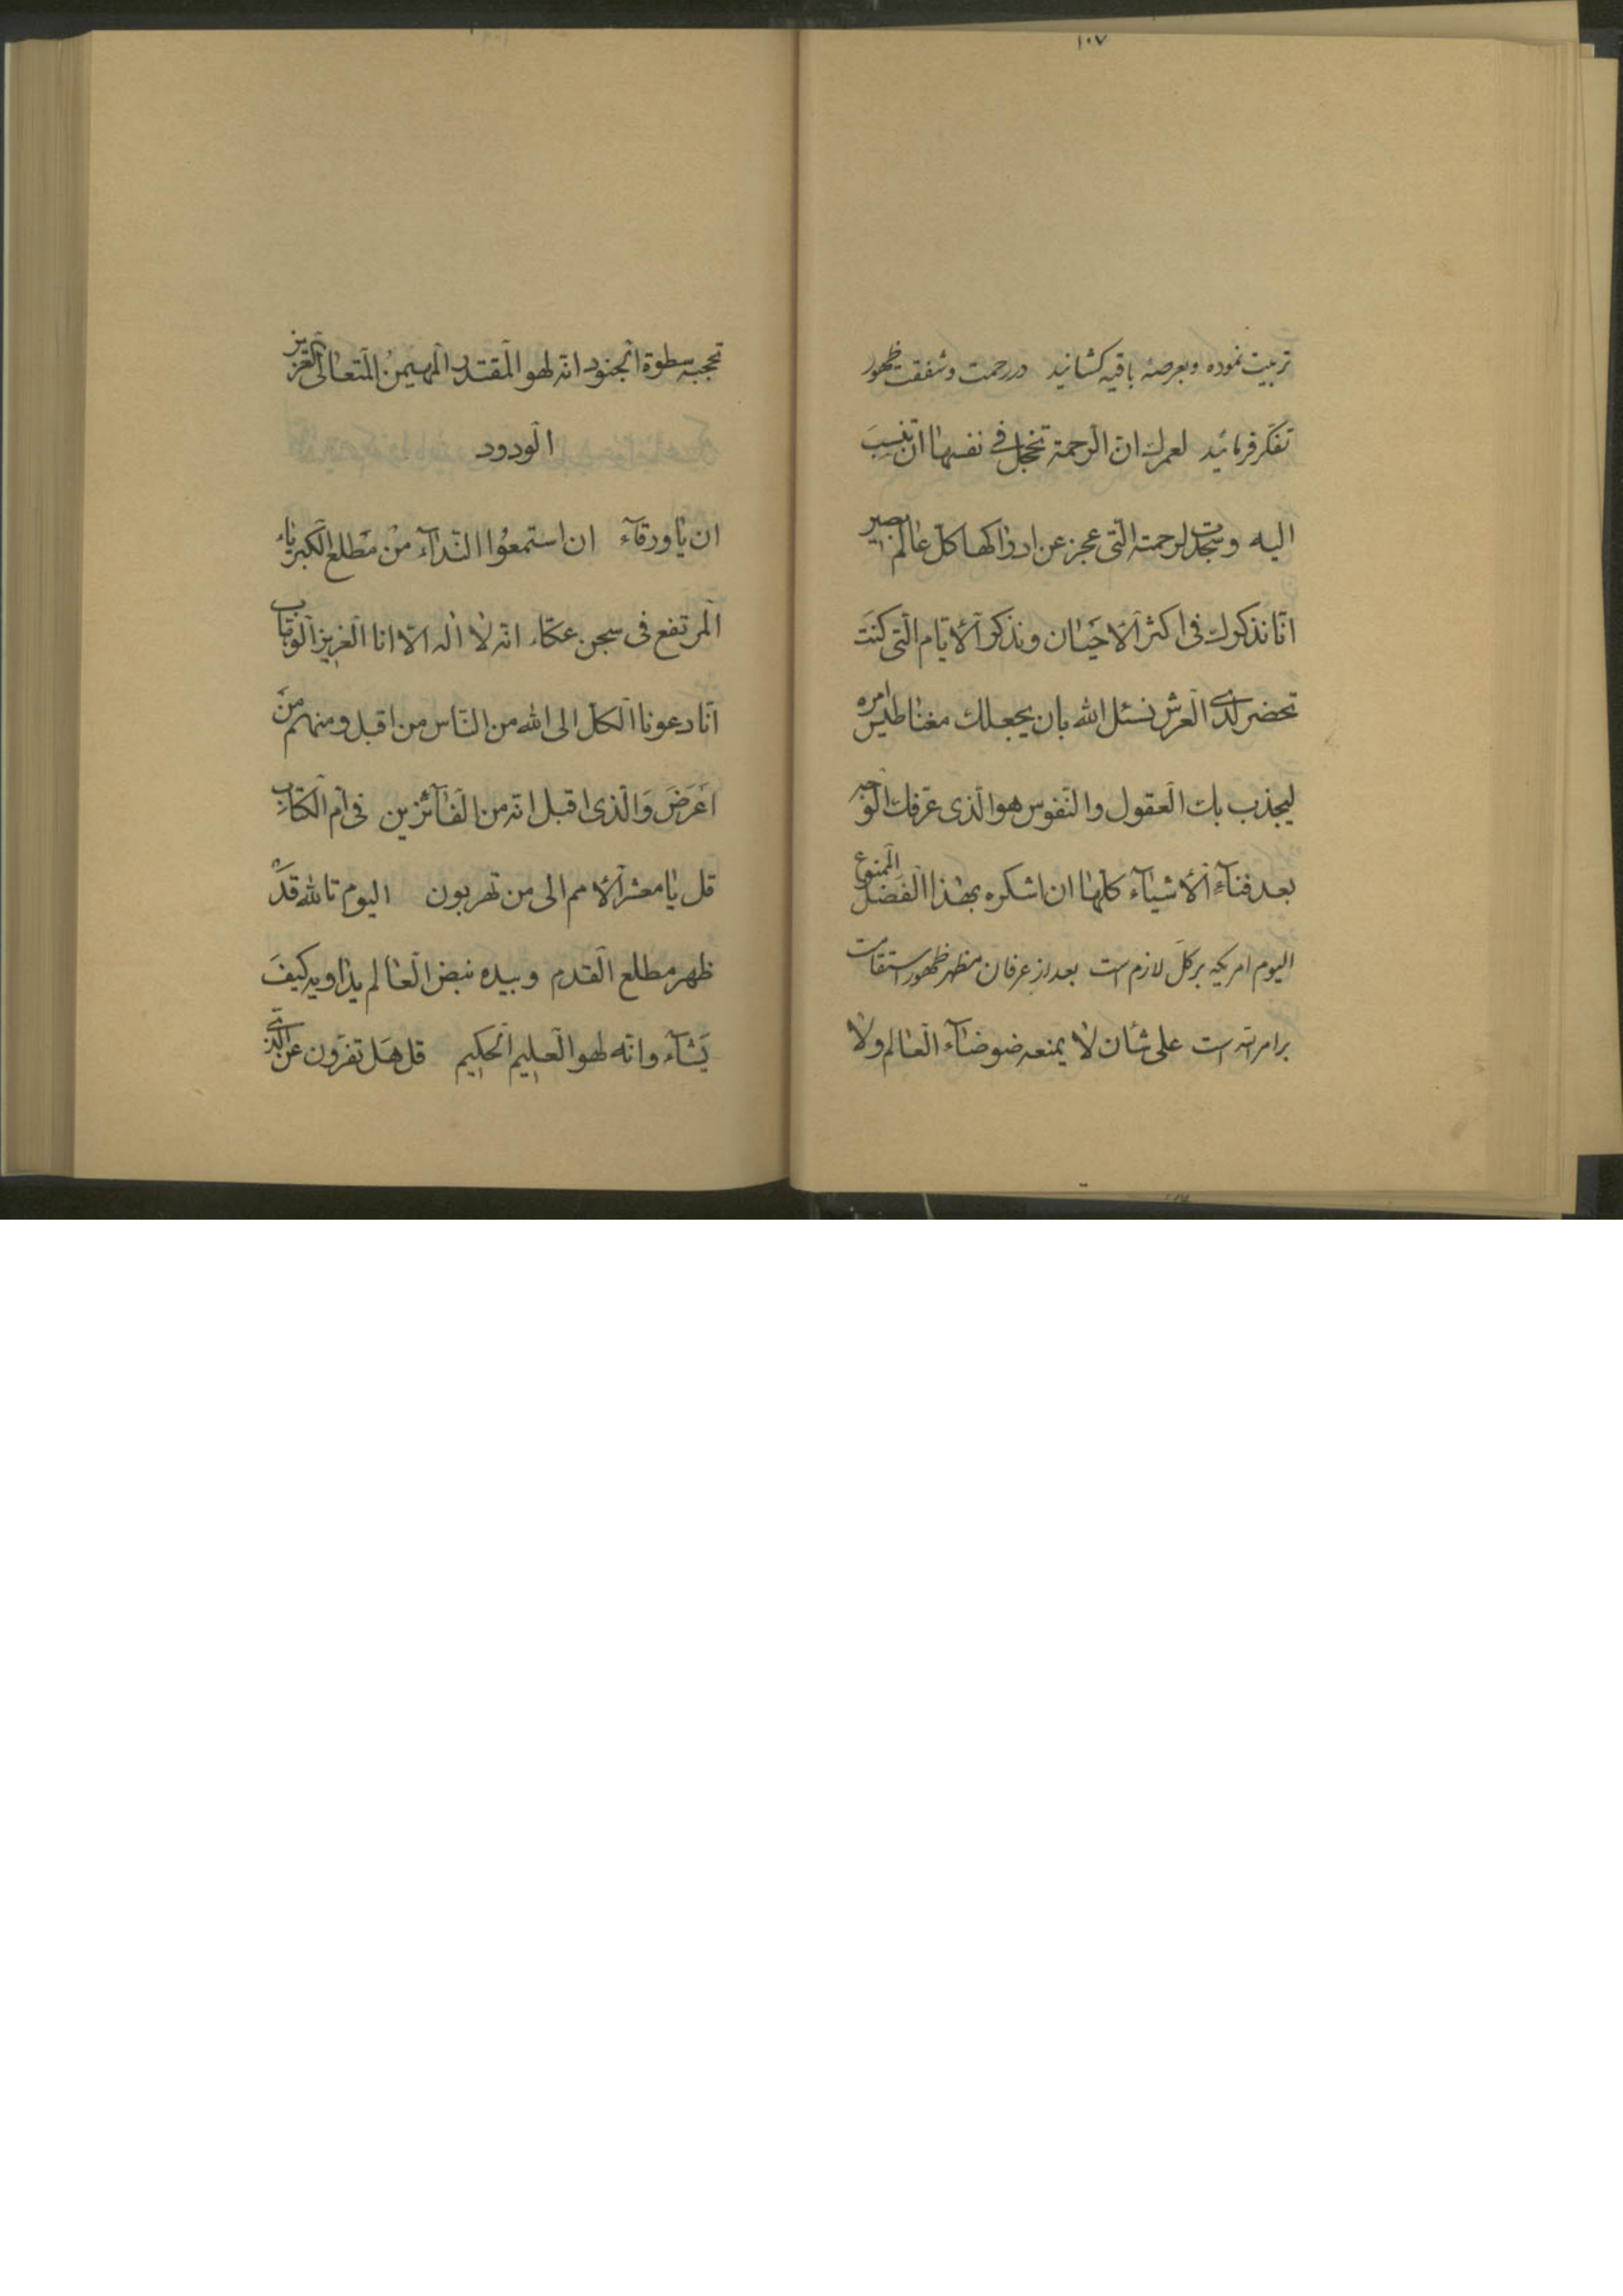 ١٠٧
تربیت نموده و بعرصهٔ باقیه کشانید در رحمت و شفقت ظهور
تفکر فرمائید لعمرك ان الرحمة تخجل فی نفسها ان تنسب
الیه و سجدت لرحمته الّتی عجز عن ادراکها کل عالم بصیر
انّا نذکرك فی اکثر الاحیان و نذکر الأیّام الّتی کنت
تحضر لدی العرش نسئل الله بان یجعلك مغناطیس امره
لیجذب بك العقول والنّفوس هو الّذی عرّفك الوجه
بعد فنآء الأشیآء کلّها ان اشکره بهذا الفضل الممنوع
الیوم امریکه بر کلّ لازم است بعد از عرفان مظهر ظهور استقامت
بر امر الله است علی شأن لا یمنعه ضوضآء العالم ولا
تحجبه سطوة الجنود انّه لهو المقتدر المهیمن المتعالی العزیز
الودود
ان یا ورقآء ان استمعوا النّدآء من مطلع الکبریاء
المرتفع فی سجن عکّاء انّه لا اله الّا انا العزیز الوهّاب
انّا دعونا الکلّ الی الله من النّاس من اقبل و منهم من
اعرض والّذی اقبل انّه من الفآئزین فی امّ الکتاب
قل یا معشر الأمم الی من تهربون الیوم تالله قد
ظهر مطلع القدم و بیده نبض العالم یداویه کیف
یشآء وانّه لهو العلیم الحکیم قل هل تفرّون عن الّذی